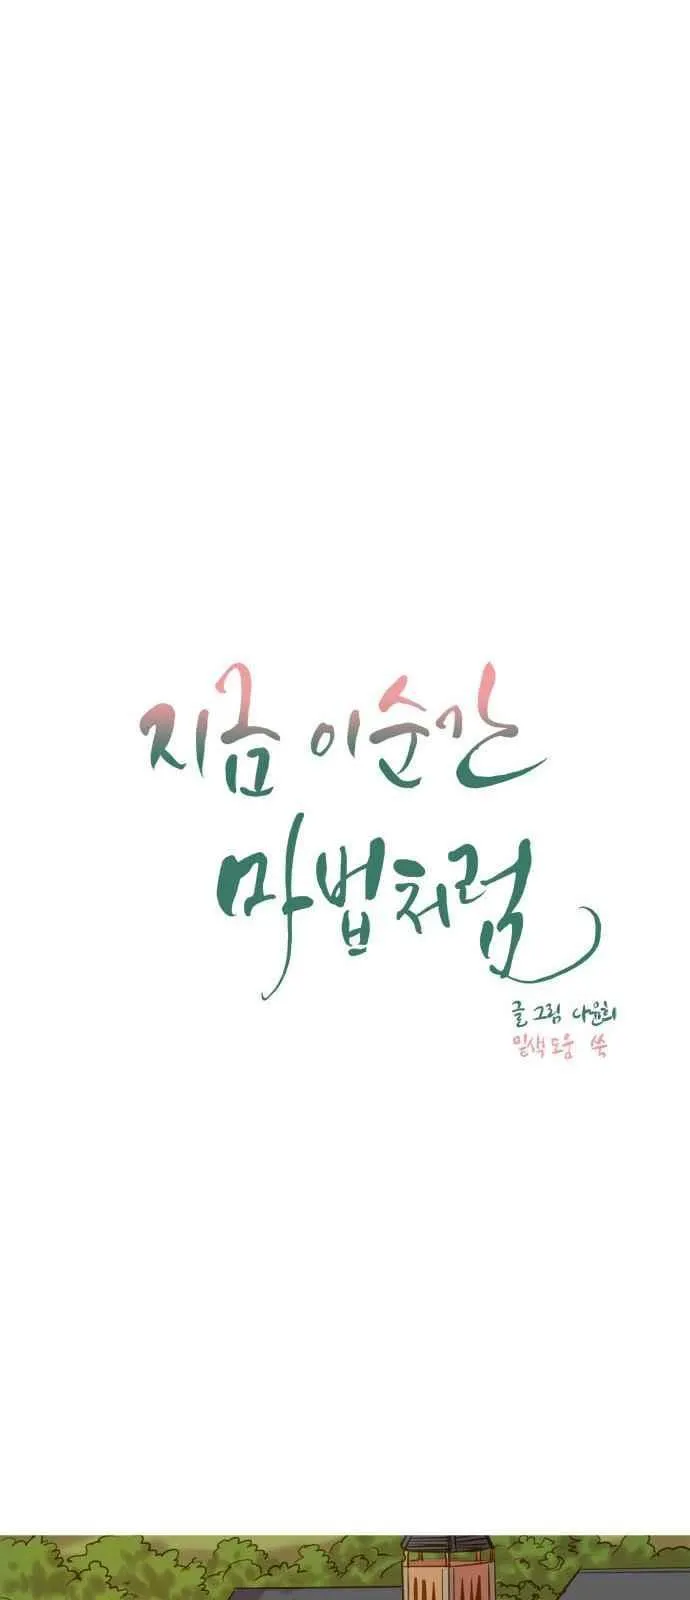 지금 이순간
마법처럼
글 그림 나윤희
밑색도움 쑥